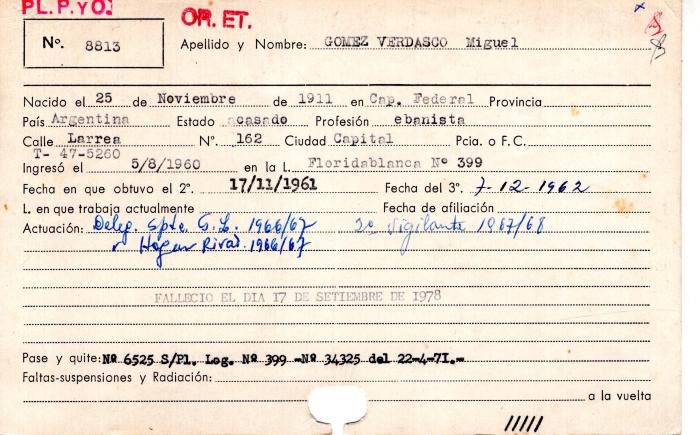 PL. P. y O.
OR. ET.
Nº. 8813
Apellido y Nombre: GOMEZ VERDASCO Miguel
Nacido el 25 de Noviembre de 1911 en Cap. Federal Provincia
País Argentina Estado casado Profesión ebanista
Calle Larrea Nº. 162 Ciudad Capital Pcia. o F.C.
T- 47-5260
Ingresó el 5/8/1960 en la L. Floridablanca Nº 399
Fecha en que obtuvo el 2º. 17/11/1961 Fecha del 3º. 7-12-1962
L. en que trabaja actualmente Fecha de afiliación
Actuación: Deleg. Spte. G.L. 1966/67 2º Vigilante 1967/68
" Hogar Rivad. 1966/67
FALLECIO EL DIA 17 DE SETIEMBRE DE 1978
Pase y quite: Nº 6525 S/Pl. Log. Nº 399 -Nº 34325 del 22-4-71.-
Faltas-suspensiones y Radiación:
a la vuelta